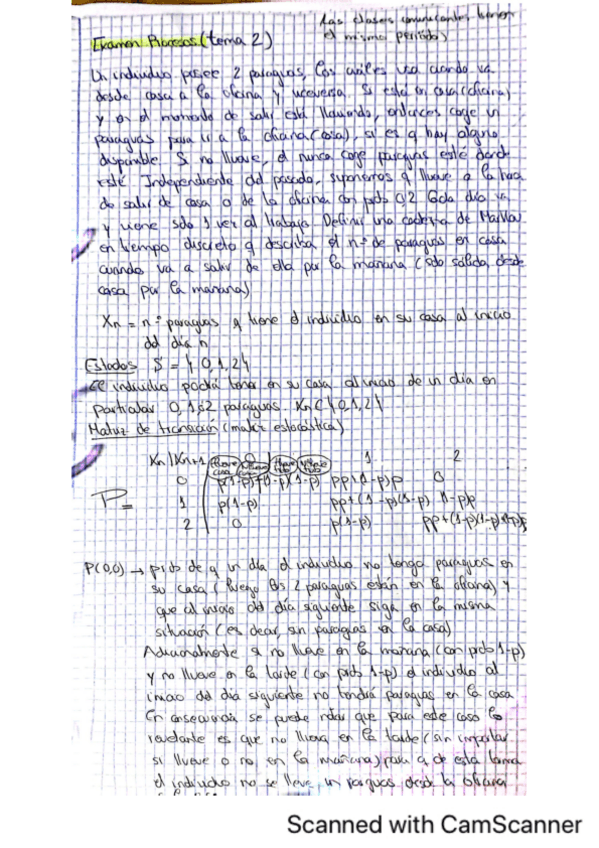 (las clases comunicantes tienen
el mismo periodo)
Examen Procesos (tema 2)
Un individuo posee 2 paraguas, los cuales usa cuando va
desde casa a la oficina y viceversa. Si está en casa (oficina)
y en el momento de salir está lloviendo, entonces coge un
paraguas para ir a la oficina (casa), si es q hay alguno
disponible. Si no llueve, él nunca coge paraguas esté donde
esté. Independiente del pasado, suponemos q llueve a la hora
de salir de casa o de la oficina con prob 0,2. Cada día va
y viene sólo 1 vez al trabajo. Definir una cadena de Markov
en tiempo discreto q describa el nº de paraguas en casa
cuando va a salir de ella por la mañana (sólo salida desde
casa por la mañana)
Xn = nº paraguas q tiene el individuo en su casa al inicio
del día n
Estados S = { 0, 1, 2 }
El individuo podrá tener en su casa al inicio de un día en
particular 0, 1 ó 2 paraguas. Xn ∈ { 0, 1, 2 }
Matriz de transición (matriz estocástica)
Xn | Xn+1 0 1 2
0 p(1-p)+(1-p)(1-p) pp+(1-p)p 0
P = 1 p(1-p) pp+(1-p)(1-p) (1-p)p
2 0 p(1-p) pp+(1-p)(1-p)+(1-p)p
P(0,0) → prob de q un día el individuo no tenga paraguas en
su casa (luego los 2 paraguas están en la oficina) y
que al inicio del día siguiente siga en la misma
situación (es decir, sin paraguas en la casa)
Adicionalmente si no llueve en la mañana (con prob 1-p)
y no llueve en la tarde (con prob 1-p) el individuo al
inicio del día siguiente no tendrá paraguas en la casa
En consecuencia se puede notar que para este caso lo
relevante es que no llueva en la tarde (sin importar
si llueve o no en la mañana) para q de esta forma
el individuo no se lleve un paraguas desde la oficina
Scanned with CamScanner